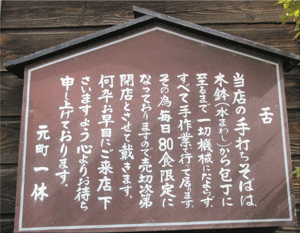 舌
当店の手打ちそばは、
木鉢(水まわし)から包丁に
至るまで一切機械にたよらず、
すべて手作業で行って居ります。
その為毎日80食限定に
なっておりますので売切次第
閉店とさせて戴きます。
何卒お早目にご来店下
さいますよう心よりお待ち
申し上げております。
元町一休